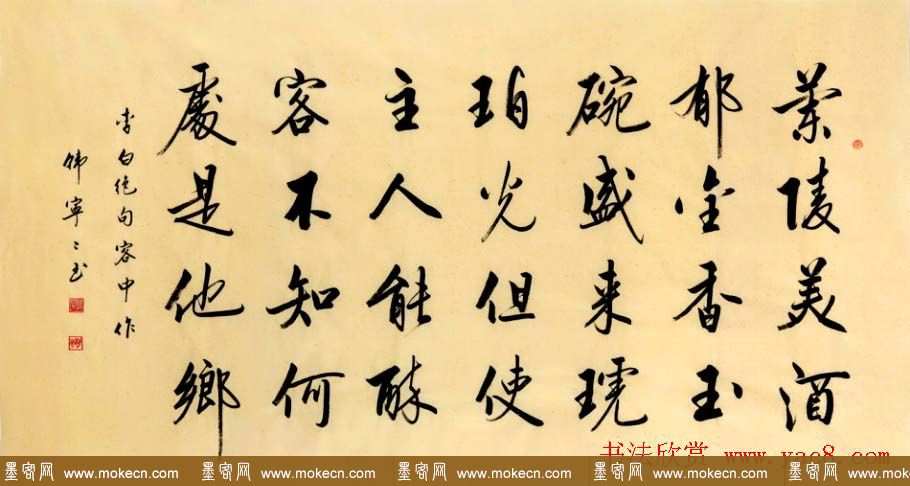 蘭陵美酒
郁金香玉
碗盛来琥
珀光但使
主人能醉
客不知何
處是他鄉
李白绝句客中作
韩寧〻书
书法欣赏 www.yac8.com
墨客网 www.mokecn.com 墨客网 www.mokecn.com 墨客网 www.mokecn.com 墨客网 www.mokecn.com 墨客网